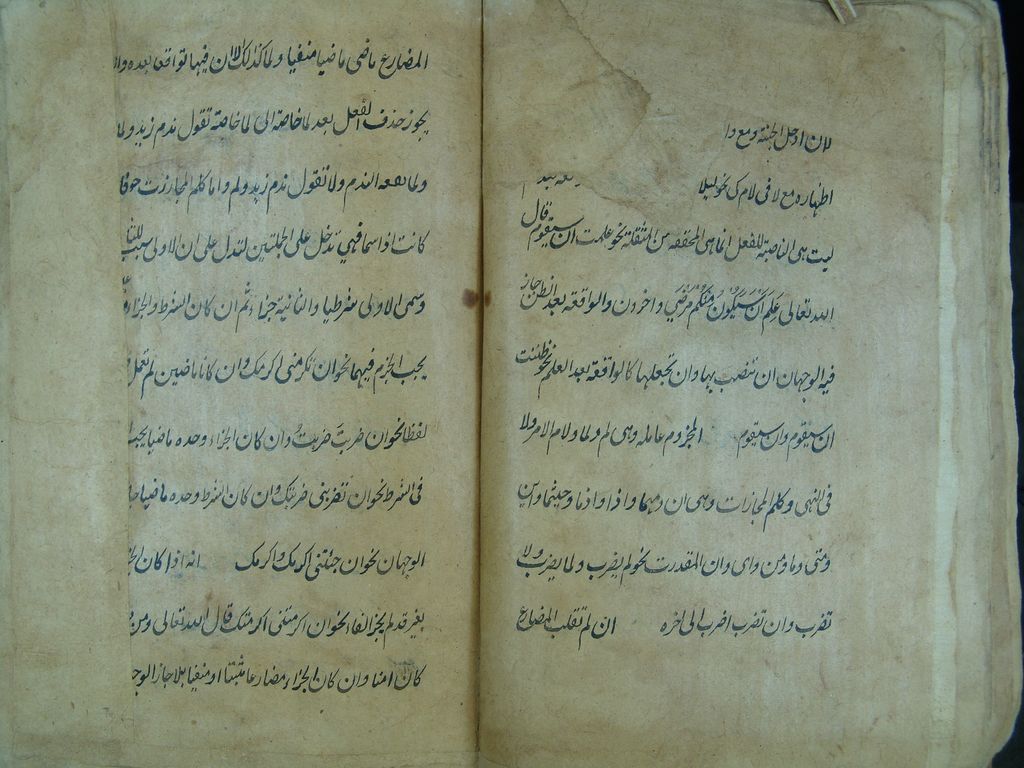 لان ادخل الجنة ومع وا
اظهاره مع لا فى لام كى نحو ليلا
ليست هى الناصبة للفعل انما هى المخففه من المثقلة نحو علمت ان سيقوم قال
الله تعالى علم ان سيكون منكم مرضى واخرون والواقعة بعد الظن جاز
فيه الوجهان ان تنصب بها وان تجعلها كالواقعة بعد العلم نحو ظننت
ان سيقوم وان سيقوم المجزوم عامله وهى لم ولما ولام الامر ولا
فى النهى وكلم المجازات وهى ان ومهما واذا واذما وحيثما واين
ومتى وما ومن واى وان المقدرت نحو لم يضرب ولما يضرب ولا
تضرب وان تضرب اضرب الى اخره ان لم تقلب المضارع
المضارع ماضى ماضيا منفيا ولما كذلك الا ان فيها توقعا بعده وا
يجوز حذف الفعل بعد لما خاصة الى لما خاصة تقول ندم زيد ولما
ولما ينفعه الندم ولا تقول ندم زيد ولم واما كلم المجازرت حرفا
كانت او اسما فهى تدخل على الجملتين لتدل على ان الاولى سبب للثا
وسمى الاولى شرطيا والثانية جزاء ثم ان كان الشرط والجزاء
يجب الجزم فيهما نحو ان تكرمنى اكرمك وان كانا ماضين لم تعمل
لفظا نحو ان ضربت ضربت وان كان الجزاء وحده ماضيا يجب
فى الشرط نحو ان تضربنى ضربتك وان كان الشرط وحده ماضيا جا
الوجهان نحو ان جئتنى اكرمك واكرمك انه اذا كان الج
بغير قد لم يجز الفاء نحو ان اكرمتنى اكرمتك قال الله تعالى ومن
كان امنا وان كان الجزاء مضارعا مثبتا او منفيا بلا جاز الوجـ